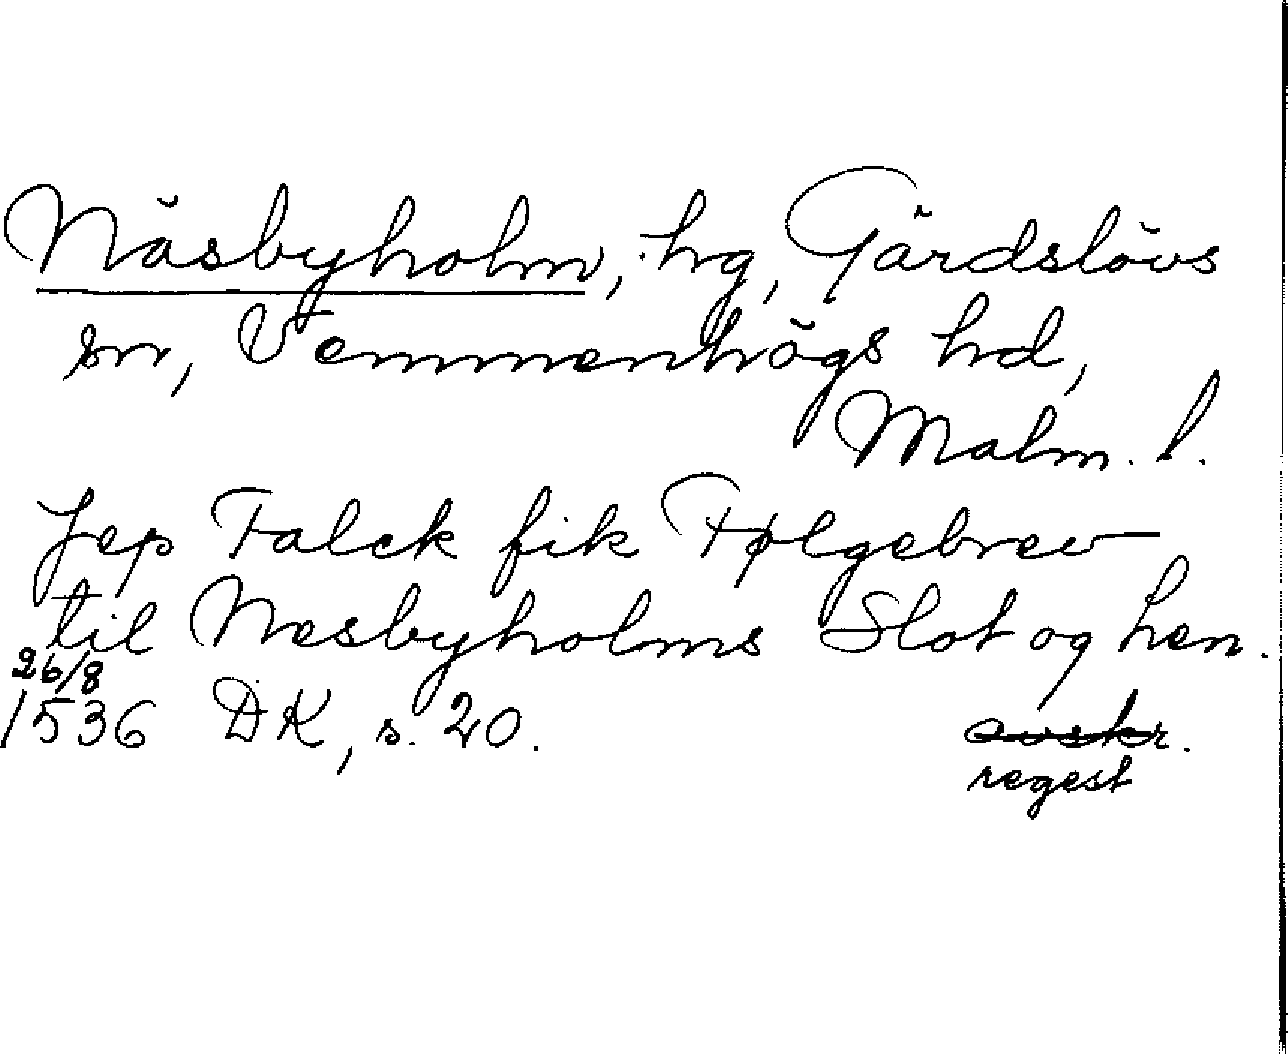 Näsbyholm, hg, Gärdslövs
sn, Vemmenhögs hd,
Malm. l.
Jep Falck fik Følgebrev
til Nesbyholms Slot og Len.
26/8
1536 DK, s. 20. avskr.
regest